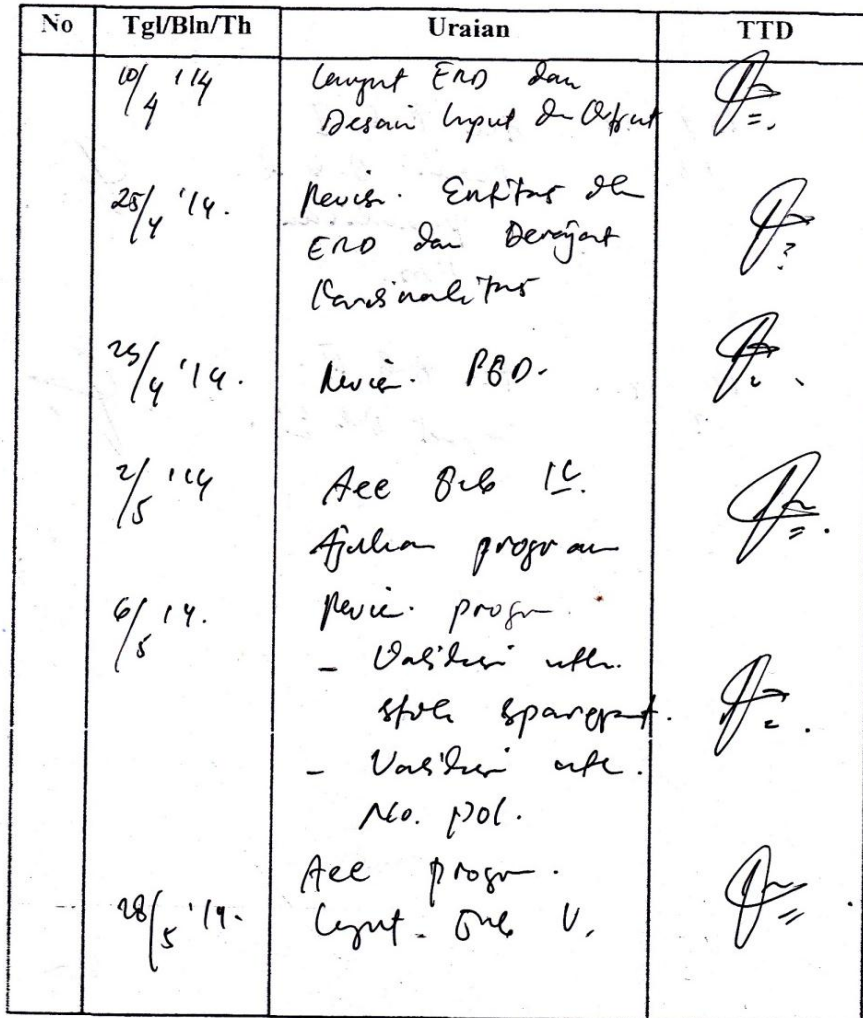 No Tgl/Bln/Th Uraian TTD
10/4 '14 Lanjut ERD dan
Desain Input dn Output
25/4 '14. Revisi. Entitas dlm
ERD dan Derajat
Kardinalitas
25/4 '14. Revisi.
2/5 '14 Acc Bab IV.
Ajukan program
6/5 '14. Revisi. progrm.
- Validasi utk.
stok sparepart.
- Validasi utk.
No. pol.
Acc progrm.
28/5 '14. Lanjut Bab V.